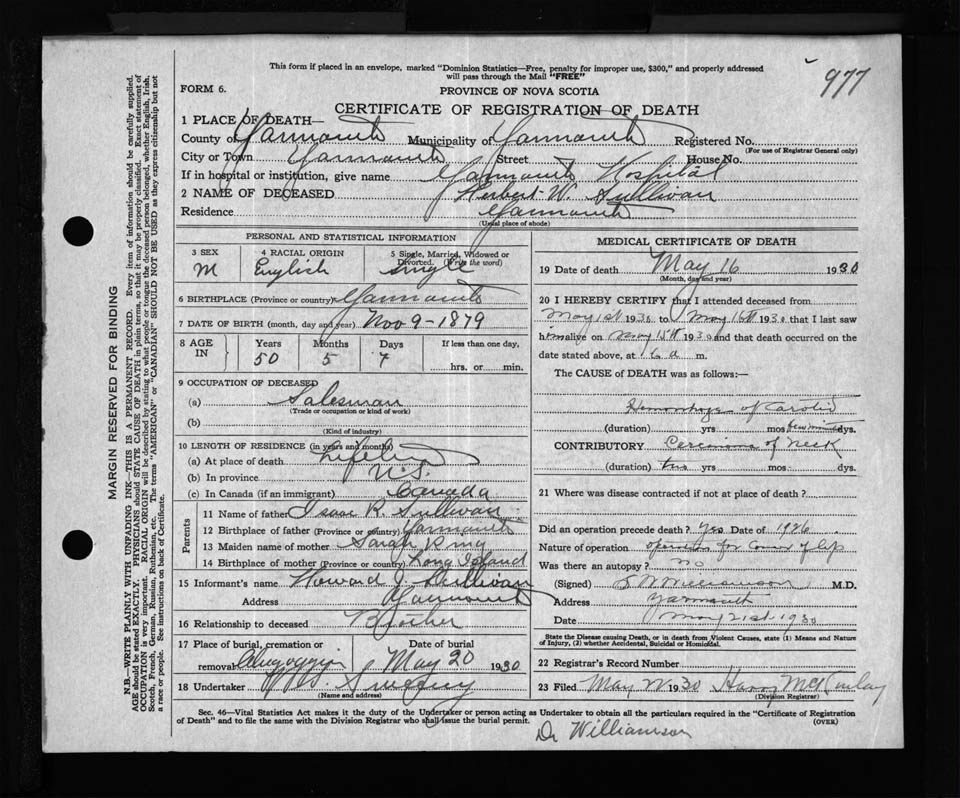 This form if placed in an envelope, marked "Dominion Statistics—Free, penalty for improper use, $300," and properly addressed
will pass through the Mail "FREE"
977
FORM 6.
PROVINCE OF NOVA SCOTIA
CERTIFICATE OF REGISTRATION OF DEATH
1 PLACE OF DEATH—
County of Yarmouth Municipality of Yarmouth Registered No.
(For use of Registrar General only)
City or Town Yarmouth Street House No.
If in hospital or institution, give name Yarmouth Hospital
2 NAME OF DECEASED Herbert W. Sullivan
Residence Yarmouth
(Usual place of abode)
PERSONAL AND STATISTICAL INFORMATION
3 SEX M
4 RACIAL ORIGIN English
5 Single, Married, Widowed or
Divorced. (Write the word) Single
6 BIRTHPLACE (Province or country) Yarmouth
7 DATE OF BIRTH (month, day and year) Nov 9-1879
8 AGE IN
Years Months Days If less than one day,
50 5 7 hrs. or min.
9 OCCUPATION OF DECEASED
(a) Salesman
(Trade or occupation or kind of work)
(b)
(Kind of industry)
10 LENGTH OF RESIDENCE (in years and months)
(a) At place of death
(b) In province N.S.
(c) In Canada (if an immigrant) Canada
Parents
11 Name of father Isaac R Sullivan
12 Birthplace of father (Province or country) Yarmouth
13 Maiden name of mother Sarah King
14 Birthplace of mother (Province or country) Long Island
15 Informant's name Howard J. Sullivan
Address Yarmouth
16 Relationship to deceased Brother
17 Place of burial, cremation or Date of burial
removal Chegoggin May 20 1930
18 Undertaker Sweeny
(Name and address)
MEDICAL CERTIFICATE OF DEATH
19 Date of death May 16 1930
(Month, day and year)
20 I HEREBY CERTIFY that I attended deceased from
May 1st 1930 to May 16th 1930 that I last saw
him alive on May 15th 1930 and that death occurred on the
date stated above, at 6 a m.
The CAUSE of DEATH was as follows:—
Hemorrhage of Carotid
(duration) yrs mos few minutes dys.
CONTRIBUTORY Carcinoma of neck
(duration) yrs mos dys.
21 Where was disease contracted if not at place of death?
Did an operation precede death? Yes Date of 1926
Nature of operation operation for Cancer of lip
Was there an autopsy? no
(Signed) Williamson M.D.
Address Yarmouth
Date May 21st 1930
State the Disease causing Death, or in death from Violent Causes, state (1) Means and Nature
of Injury, (2) whether Accidental, Suicidal or Homicidal.
22 Registrar's Record Number
23 Filed May 22 1930 Harry
(Division Registrar)
Sec. 46—Vital Statistics Act makes it the duty of the Undertaker or person acting as Undertaker to obtain all the particulars required in the "Certificate of Registration
of Death" and to file the same with the Division Registrar who shall issue the burial permit.
(OVER)
Dr Williamson
MARGIN RESERVED FOR BINDING
N.B.—WRITE PLAINLY WITH UNFADING INK—THIS IS A PERMANENT RECORD. Every item of information should be carefully supplied.
AGE should be stated EXACTLY. PHYSICIANS should STATE CAUSE OF DEATH in plain terms, so that it may be properly classified. Exact statement of
OCCUPATION is very important. RACIAL ORIGIN will be described by stating to what people or tongue the deceased person belonged, whether English, Irish,
Scotch, French, German, Russian, Ruthenian, etc. The terms "AMERICAN" or "CANADIAN" SHOULD NOT BE USED as they express citizenship but not
a race or people. See instructions on back of Certificate.